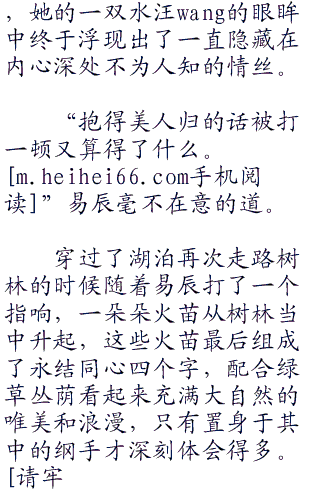 ，她的一双水汪wang的眼眸
中终于浮现出了一直隐藏在
内心深处不为人知的情丝。
“抱得美人归的话被打
一顿又算得了什么。
[m.heihei66.com手机阅
读]”易辰毫不在意的道。
穿过了湖泊再次走路树
林的时候随着易辰打了一个
指响，一朵朵火苗从树林当
中升起，这些火苗最后组成
了永结同心四个字，配合绿
草丛荫看起来充满大自然的
唯美和浪漫，只有置身于其
中的纲手才深刻体会得多。
[请牢